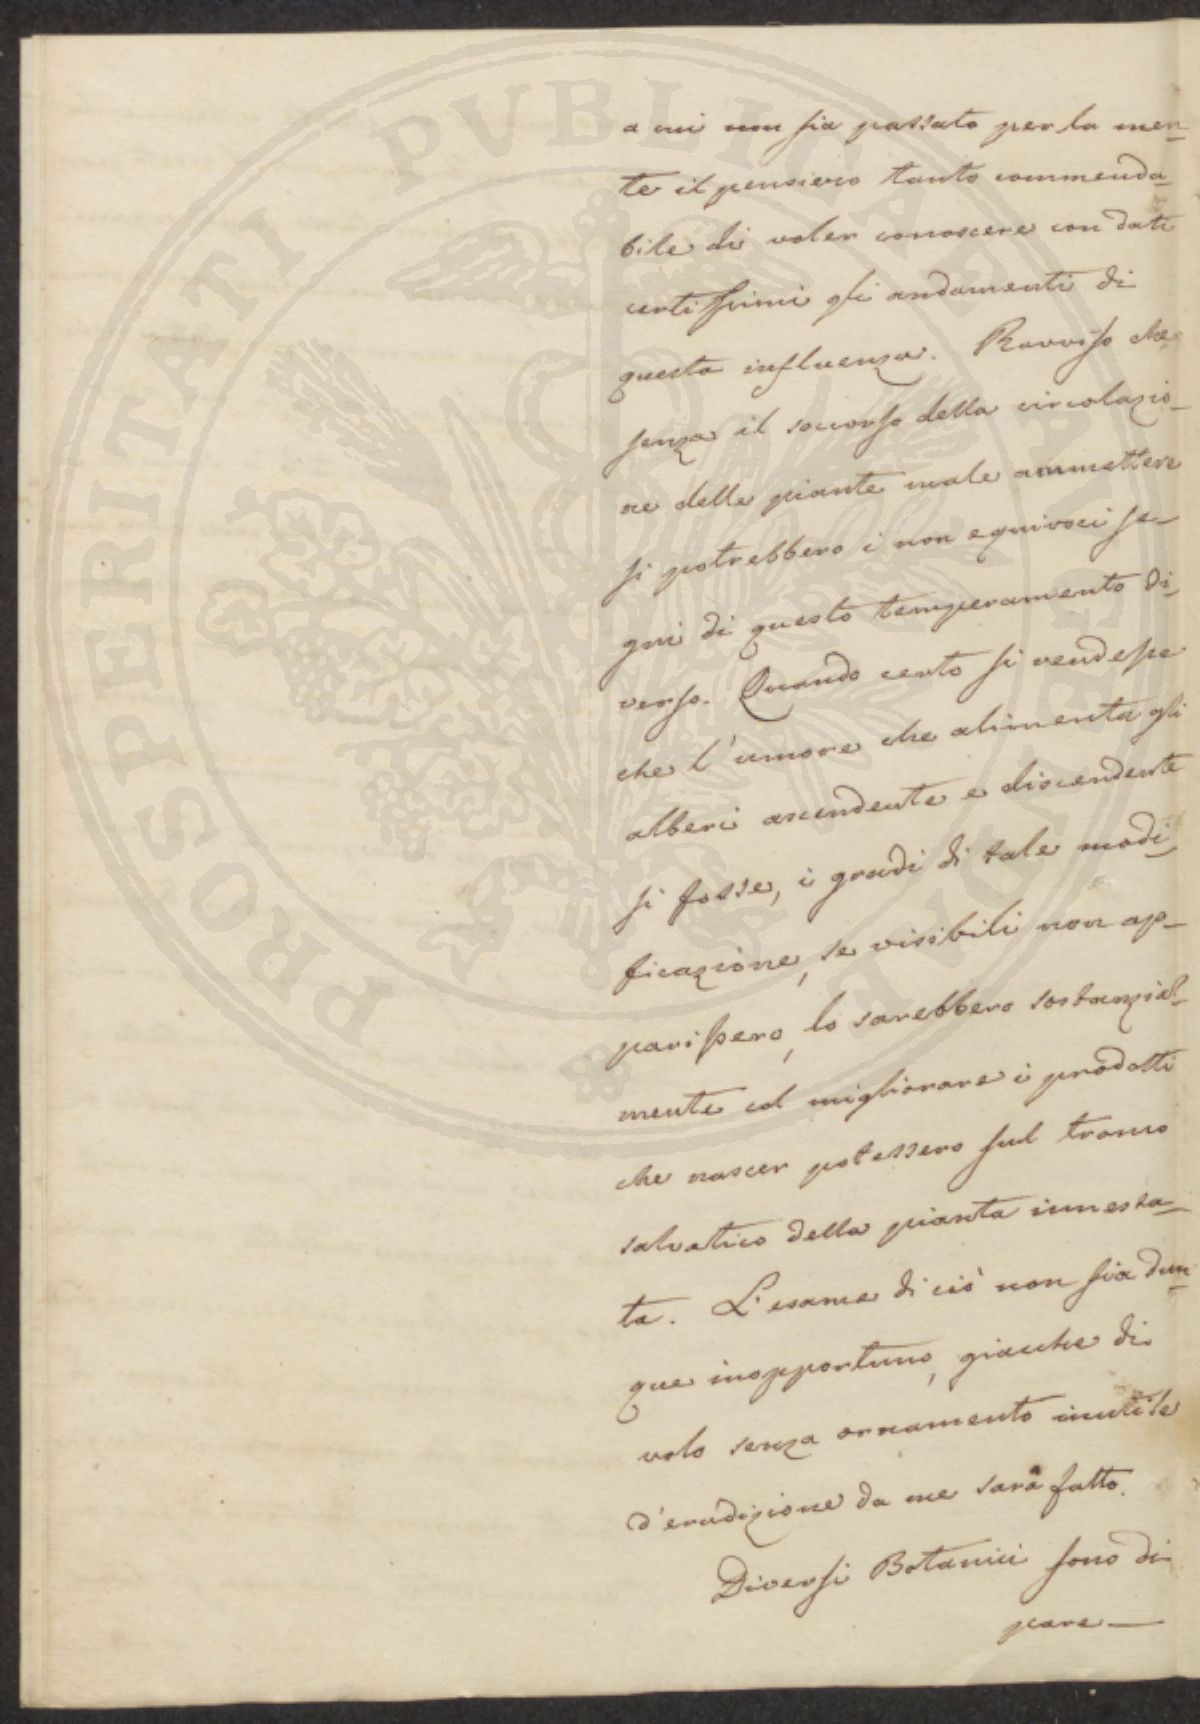 PROSPERITATI PVBLICAE AVGENDAE
a cui non sia passato per la men-
te il pensiero tanto commenda-
bile di voler conoscere con dati
certissimi gli andamenti di
questa influenza. Ravviso che
senza il soccorso della circolazio-
ne delle piante male ammettere
si potrebbero i non equivoci se-
gni di questo temperamento di
verso. Quando certo si rendesse
che l'umore che alimenta gli
alberi ascendente e discendente
si fosse, i gradi di tale modi-
ficazione, se visibili non ap-
parissero, lo sarebbero sostanzial-
mente col migliorare i prodotti
che nascer potessero sul tronco
salvatico della pianta innesta-
ta. L'esame di ciò non sia dun-
que inopportuno, giacche di
volo senza ornamento inutile
d'erudizione da me sarà fatto.
Diversi Botanici sono di
pare—